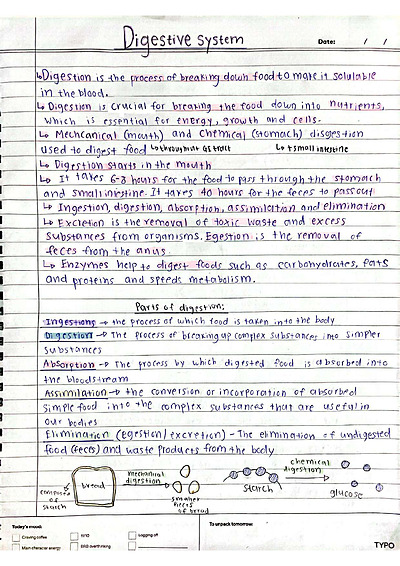 Digestive system
Date: / /
↳ Digestion is the process of breaking down food to make it solulable
in the blood.
↳ Digestion is crucial for breaking the food down into nutrients,
which is essential for energy, growth and cells.
↳ Mechcanical (mouth) and chemical (stomach) disgestion
used to digest food ↳ throughout GI tract ↳ + small intestine
↳ Digestion starts in the mouth
↳ It takes 6-8 hours for the food to pass through the stomach
and small intestine. It takes 40 hours for the feces to pass out
↳ Ingestion, digestion, absorption, assimilation and elimination
↳ Excretion is the removal of toxic waste and excess
substances from organisms. Egestion is the removal of
feces from the anus.
↳ Enzymes help to digest foods such as carbohydrates, fats
and proteins and speeds metabolism.
Parts of digestion:
Ingestions → the process of which food is taken into the body
Digestion → The process of breaking up complex substances into simpler
substances
Absorption → The process by which digested food is absorbed into
the bloodstream
Assimilation → the conversion or incorporation of absorbed
simple food into the complex substances that are useful in
our bodies
Elimination (Egestion/excretion) - The elimination of undigested
food (feces) and waste products from the body
bread
composed of starch
mechanical digestion
smaller pieces of bread
starch
chemical digestion
glucose
Today's mood:
Craving coffee
Main character energy
BRB overthinking
Logging off
To unpack tomorrow:
TYPO